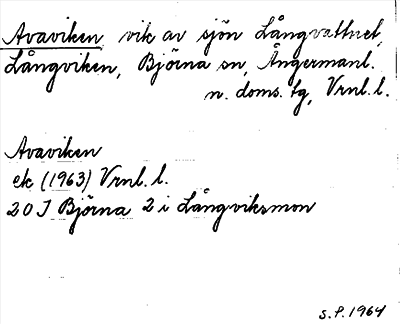 Avaviken vik av sjön Långvattnet,
Långviken, Björna sn, Ångermanl.
n. doms. tg, Vrnl. l.
Avaviken
ek (1963) Vrnl. l.
20 J Björna 2 i Långviksmon
S.P. 1964